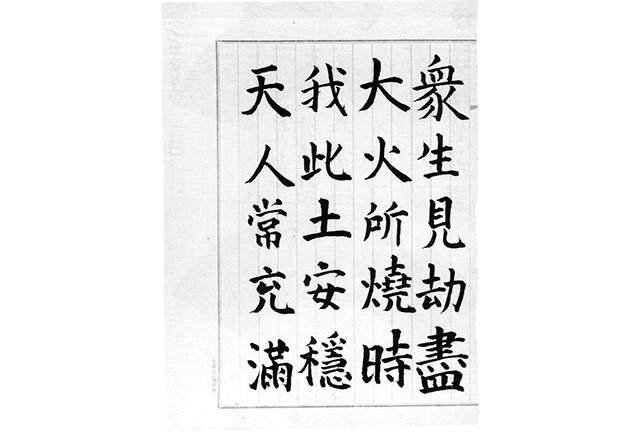 衆生見劫盡
大火所燒時
我此土安穩
天人常充滿